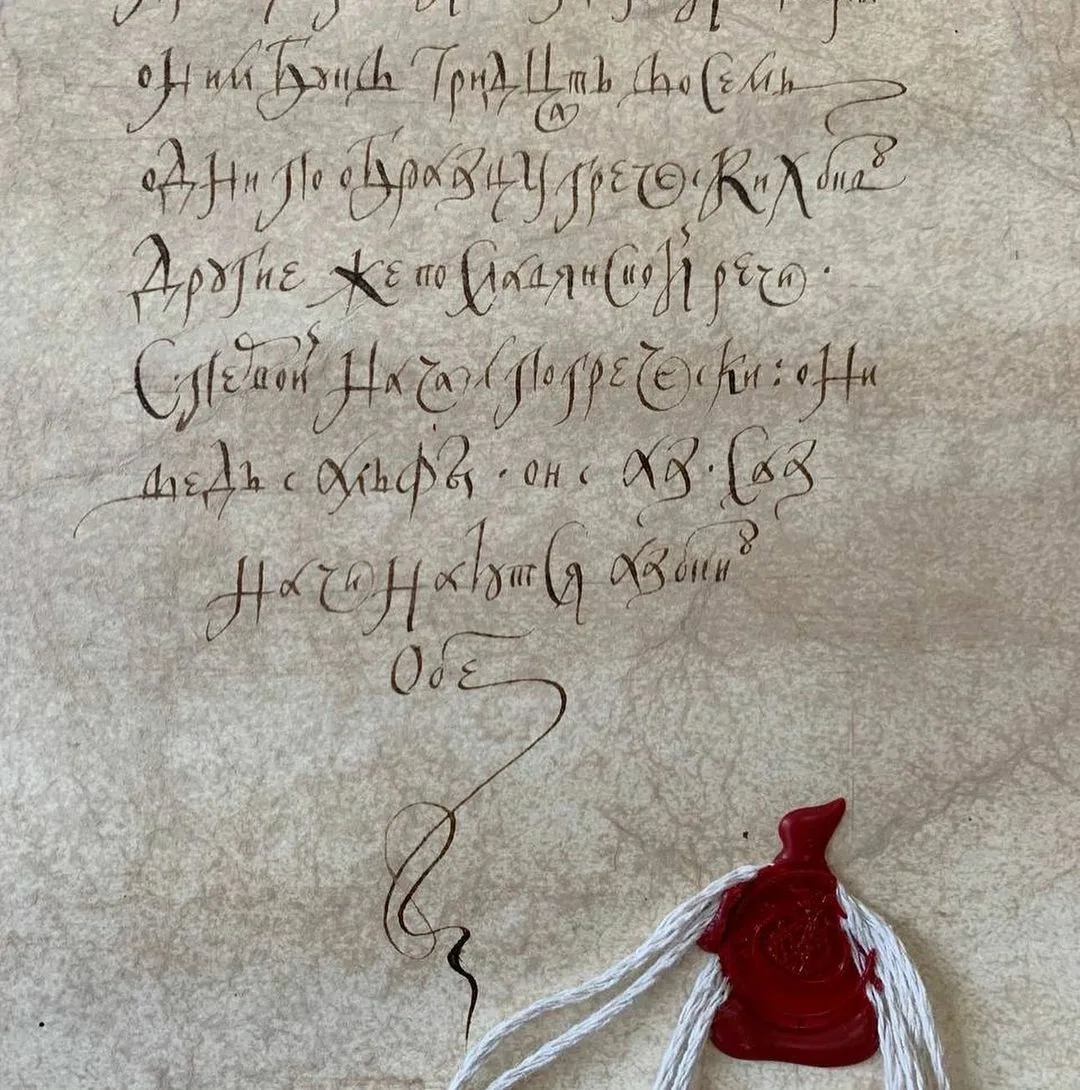 он им буквы тридцать восемь
одни по образцу греческих букв
Другие же по славянской речи.
С первой начал по гречески: они
ведь с альфы · он с аз · С аз
начинаются азбуки
Обе